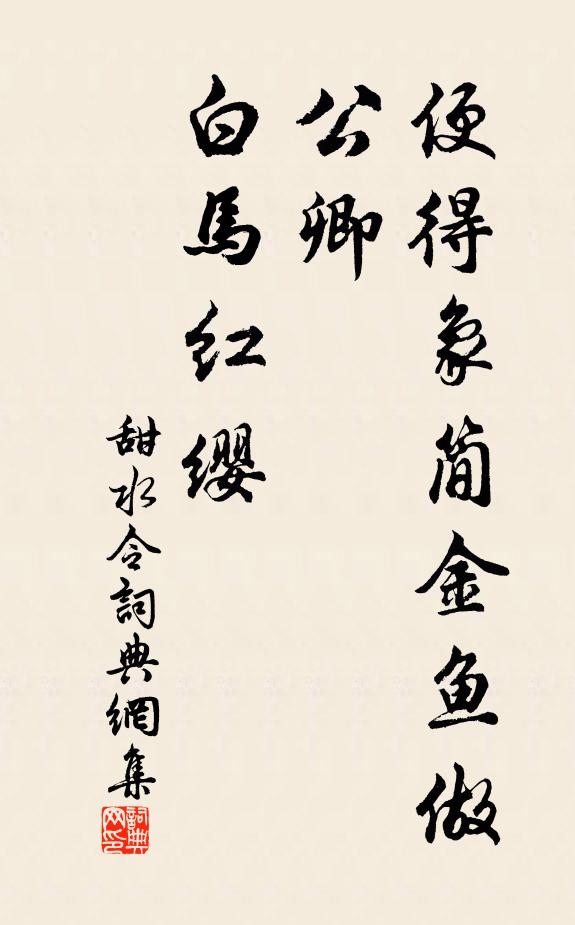 便得象简金鱼做
公卿
白馬红缨
甜水令詞典網集
詞典
网印